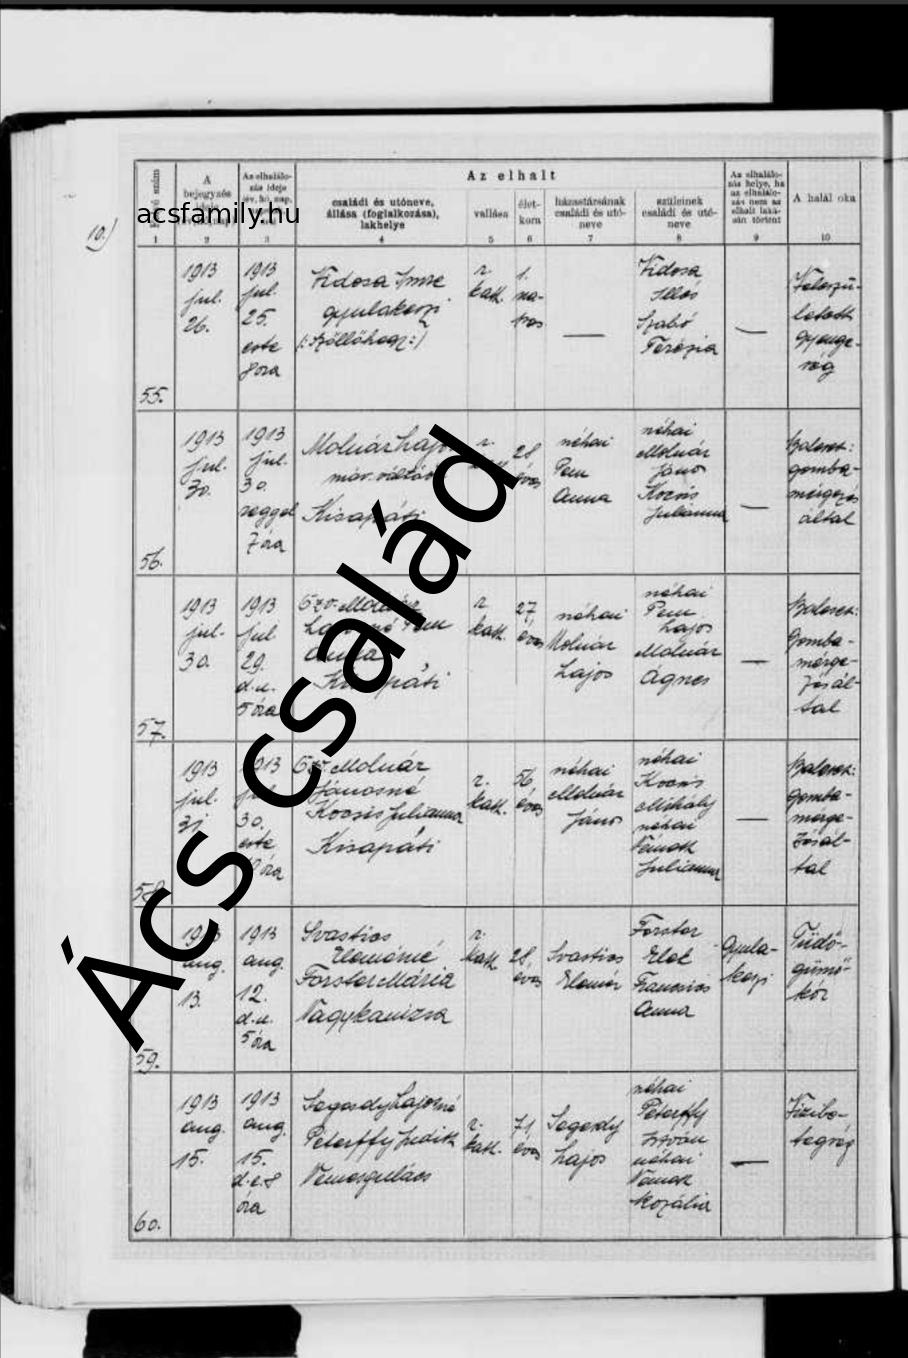 acsfamily.hu
Ács család
10.)
Az elhalt
szám
A
bejegyzés
ideje
Az elhalálo-
zás ideje
év, hó, nap,
családi és utóneve,
állása (foglalkozása),
lakhelye
vallása
élet-
kora
házastársának
családi és utó-
neve
szüleinek
családi és utó-
neve
Az elhalálo-
zás helye, ha
az elhalálo-
zás nem az
elhalt laká-
sán történt
A halál oka
1 2 3 4 5 6 7 8 9 10
55.
1913
jul.
26.
1913
jul.
25.
este
8 óra
Vidosa Imre
gyulakeszi
r.
kath.
1.
na-
pos
Vidosa
Illés
Szabó
Terézia
Veleszü-
letett
gyenge-
ség
56.
1913
jul.
30.
1913
jul.
30.
reggel
7 óra
Molnár Lajos
Kisapáti
r.
28
éves
néhai
Pem
Anna
néhai
Molnár
János
Kocsis
Julianna
Baleset:
gomba-
mérgezés
által
57.
1913
jul.
30.
1913
jul
29.
d.u.
5 óra
Özv. Molnár
Lajosné Pem
Anna
Kisapáti
r.
kath.
27
éves
néhai
Molnár
Lajos
néhai
Pem
Lajos
Molnár
Ágnes
Baleset:
Gomba-
mérge-
zés ál-
tal
58.
1913
jul.
31
1913
jul.
30.
este
8 óra
Özv. Molnár
Jánosné
Kocsis Julianna
Kisapáti
r.
kath.
56
éves
néhai
Molnár
János
néhai
Kocsis
Mihály
néhai
Németh
Julianna
Baleset:
Gomba-
mérge-
zés ál-
tal
59.
1913
aug.
13.
1913
aug.
12.
d.u.
5 óra
Svastics
Elemérné
Forster Mária
Nagykanizsa
r.
kath
28.
éves
Svastics
Elemér
Forster
Elek
Francsics
Anna
Gyula-
keszi
Tüdő-
gümő-
kór
60.
1913
aug.
15.
1913
aug.
15.
d.e. 8
óra
Segesdy Lajosné
Péterffy Judith
Nemesgulács
r.
kath.
71
éves
Segesdy
Lajos
néhai
Péterffy
István
néhai
Németh
Rozália
Vizibe-
tegség